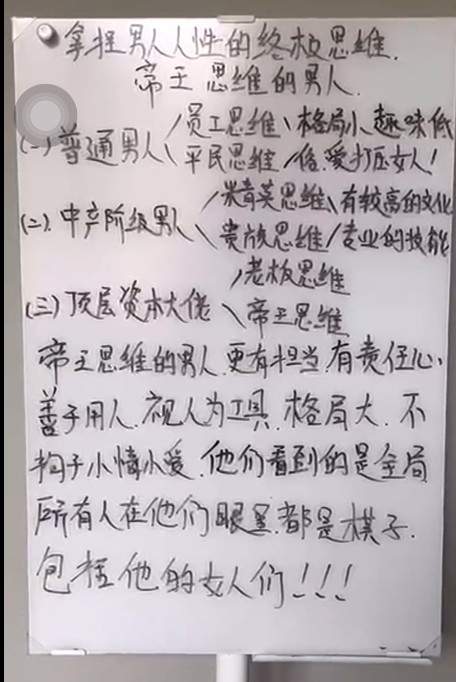 拿捏男人人性的终极思维.
帝王思维的男人.
(一)普通男人
员工思维、格局小、趣味低
平民思维 俗、爱打压女人!
(二).中产阶级男人
精英思维、有较高的文化
贵族思维 专业的技能
(三)顶层资本大佬
老板思维
帝王思维
帝王思维的男人.更有担当.有责任心.
善于用人.视人为工具.格局大.不
拘于小情小爱.他们看到的是全局
所有人在他们眼里.都是棋子.
包括他的女人们!!!